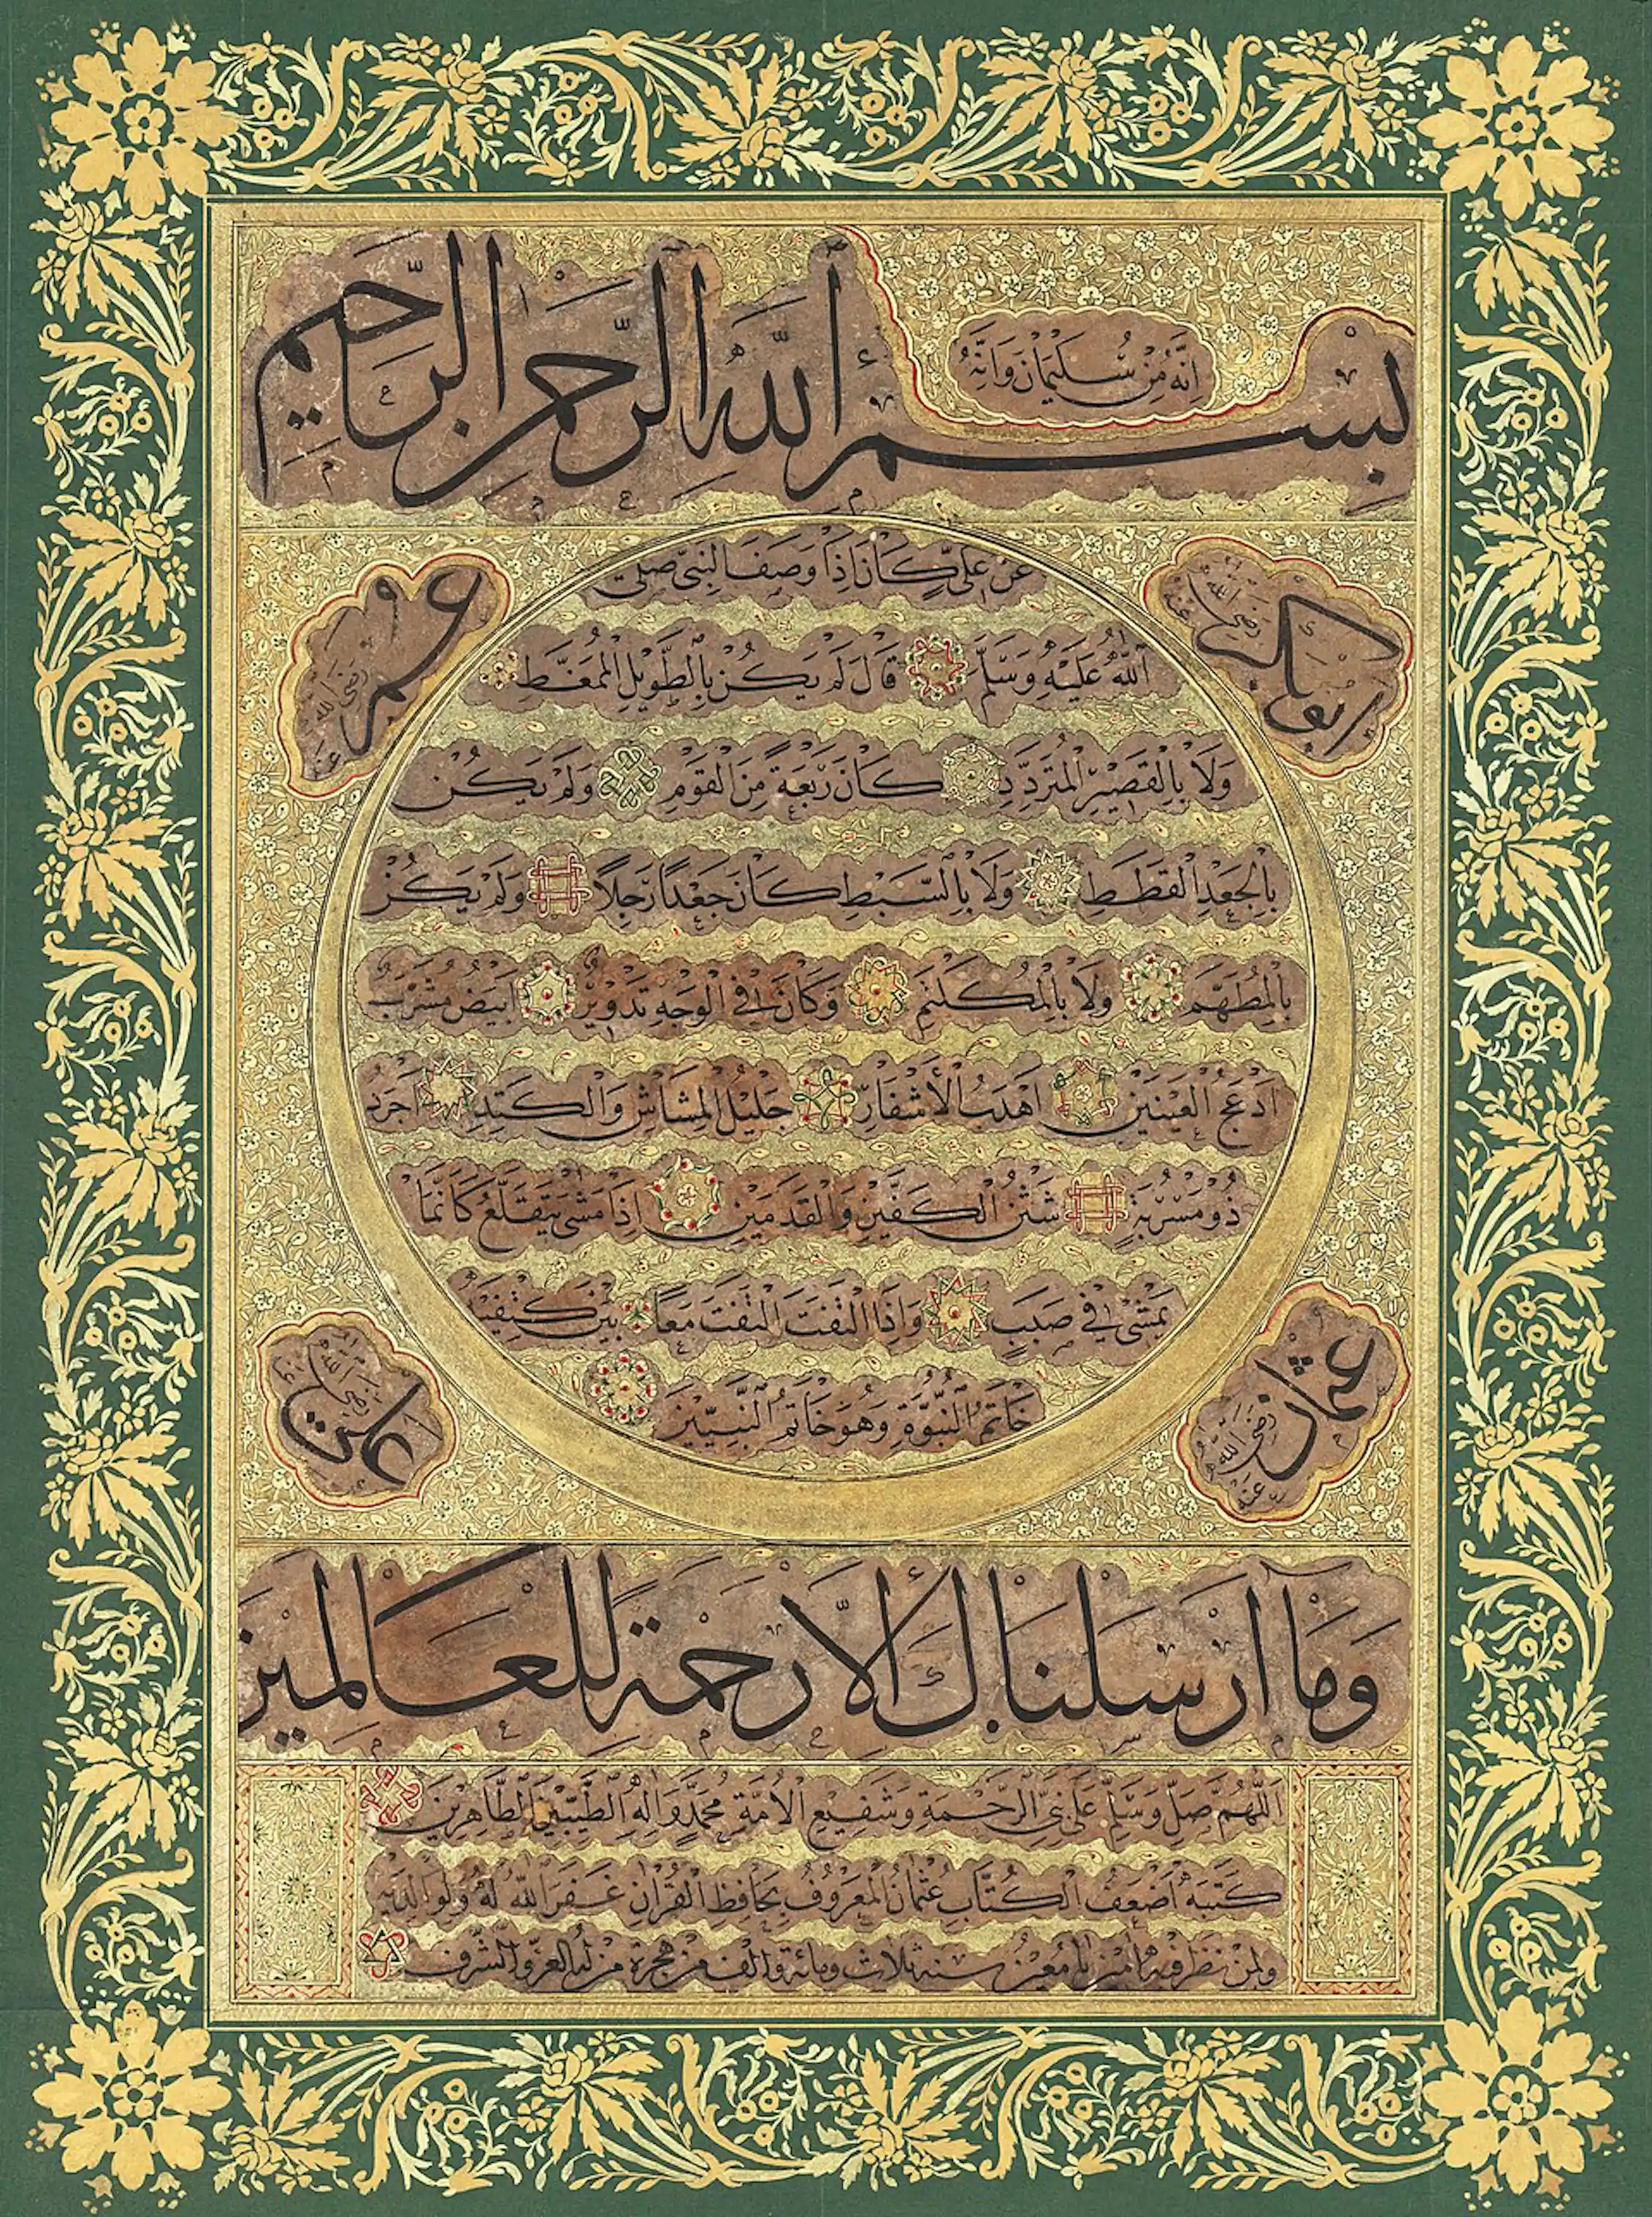 اِنَّهُ مِنْ سُلَيْمَانَ وَاِنَّهُ
بِسْمِ اللّٰهِ الرَّحْمٰنِ الرَّحِيمِ
عَنْ عَلِيٍّ كَانَ اِذَا وَصَفَ النَّبِيَّ صَلَّى
اَللّٰهُ عَلَيْهِ وَسَلَّمَ قَالَ لَمْ يَكُنْ بِالطَّوِيلِ الْمُمَغَّطِ
وَلَا بِالْقَصِيرِ الْمُتَرَدِّدِ كَانَ رَبْعَةً مِنَ الْقَوْمِ وَلَمْ يَكُنْ
بِالْجَعْدِ الْقَطَطِ وَلَا بِالسَّبَطِ كَانَ جَعْدًا رَجِلًا وَلَمْ يَكُنْ
بِالْمُطَهَّمِ وَلَا بِالْمُكَلْثَمِ وَكَانَ فِي الْوَجْهِ تَدْوِيرٌ اَبْيَضُ مُشْرَبٌ
اَدْعَجُ الْعَيْنَيْنِ اَهْدَبُ الْأَشْفَارِ جَلِيلُ الْمُشَاشِ وَالْكَتَدِ اَجْرَدُ
ذُو مَسْرُبَةٍ شَثْنُ الْكَفَّيْنِ وَالْقَدَمَيْنِ اِذَا مَشٰى يَتَقَلَّعُ كَاَنَّمَا
يَمْشِي فِي صَبَبٍ وَاِذَا الْتَفَتَ الْتَفَتَ مَعًا بَيْنَ كَتِفَيْهِ
خَاتَمُ النُّبُوَّةِ وَهُوَ خَاتَمُ النَّبِيِّينَ
ابو بكر رضي الله عنه
عمر رضي الله عنه
عثمان رضي الله عنه
على رضي الله عنه
وَمَا اَرْسَلْنَاكَ اِلَّا رَحْمَةً لِلْعَالَمِينَ
اَللّٰهُمَّ صَلِّ وَسَلِّمْ عَلٰى نَبِيِّ الرَّحْمَةِ وَشَفِيعِ الْاُمَّةِ مُحَمَّدٍ وَاٰلِهِ الطَّيِّبِينَ الطَّاهِرِينَ
كَتَبَهُ اَضْعَفُ الْكُتَّابِ عُثْمَانُ الْمَعْرُوفُ بِحَافِظِ الْقُرْاٰنِ غَفَرَ اللّٰهُ لَهُ وَلِوَالِدَيْهِ
وَلِمَنْ نَظَرَ فِيهِ اٰمِينَ يَا مُعِينُ سنة ثلاث ومائة والف من هجرة من له العز والشرف